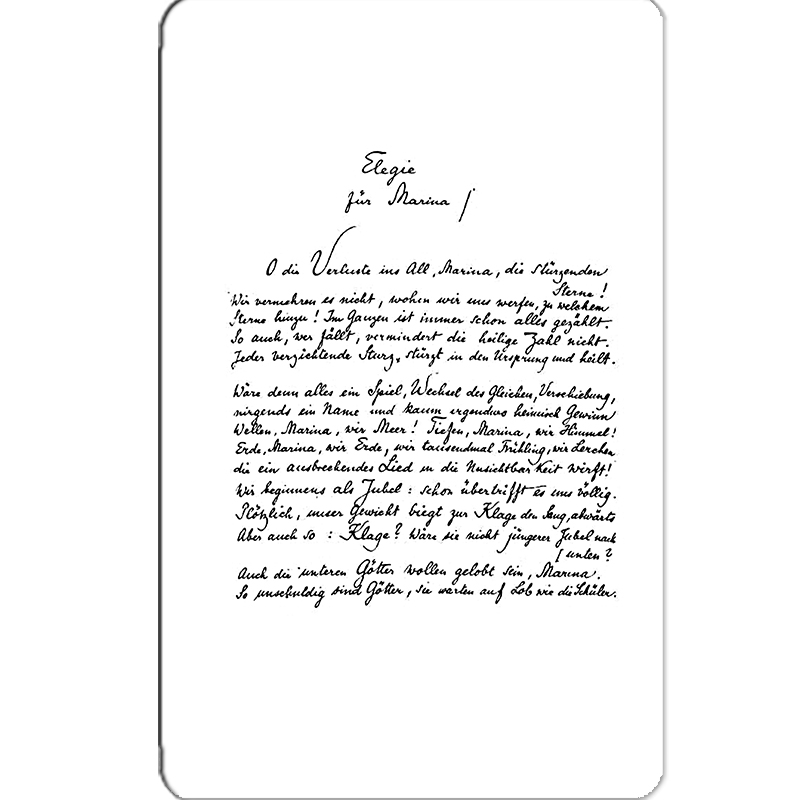 Elegie
für Marina
O die Verluste ins All, Marina, die stürzenden
Sterne!
Wir vermehren es nicht, wohin wir uns werfen, zu welchem
Sterne hinzu! Im Ganzen ist immer schon alles gezählt.
So auch, wer fällt, vermindert die heilige Zahl nicht.
Jeder verzichtende Sturz, stürzt in den Ursprung und heilt.
Wäre denn alles ein Spiel, Wechsel des Gleichen, Verschiebung,
nirgends ein Name und kaum irgendwo heimisch Gewinn
Wellen, Marina, wir Meer! Tiefen, Marina, wir Himmel!
Erde, Marina, wir Erde, wir tausendmal Frühling, wir Lerchen
die ein ausbrechendes Lied in die Unsichtbarkeit wirft!
Wir beginnens als Jubel: schon übertrifft es uns völlig.
Plötzlich, unser Gewicht biegt zur Klage den Sang, abwärts
Aber auch so: Klage? Wäre sie nicht jüngerer Jubel nach
[unten?
Auch die unteren Götter wollen gelobt sein, Marina.
So unschuldig sind Götter, sie warten auf Lob wie die Schüler.